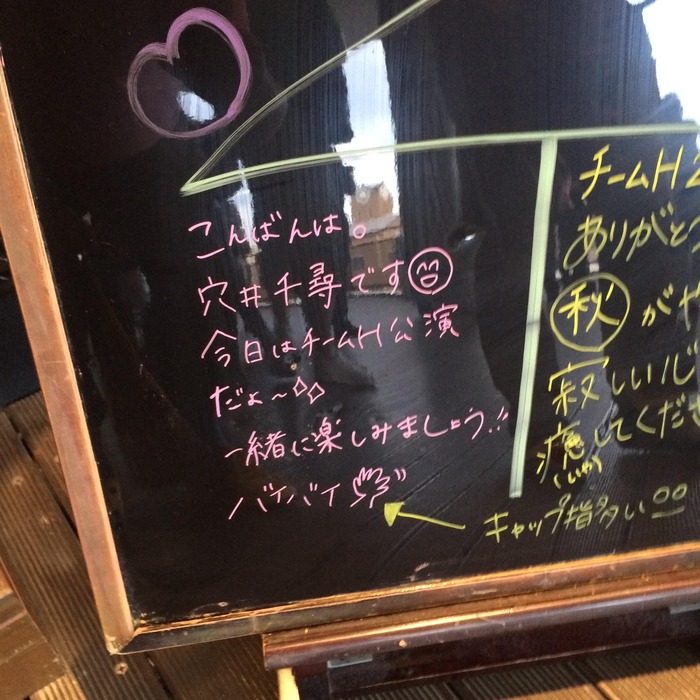 こんばんは。
穴井千尋です
今日はチームH公演
だょ～
一緒に楽しみましょう!!
バイバイ
チームH
ありがと
秋が
寂しい心
癒してくださ
(いや)
キャップ指多い